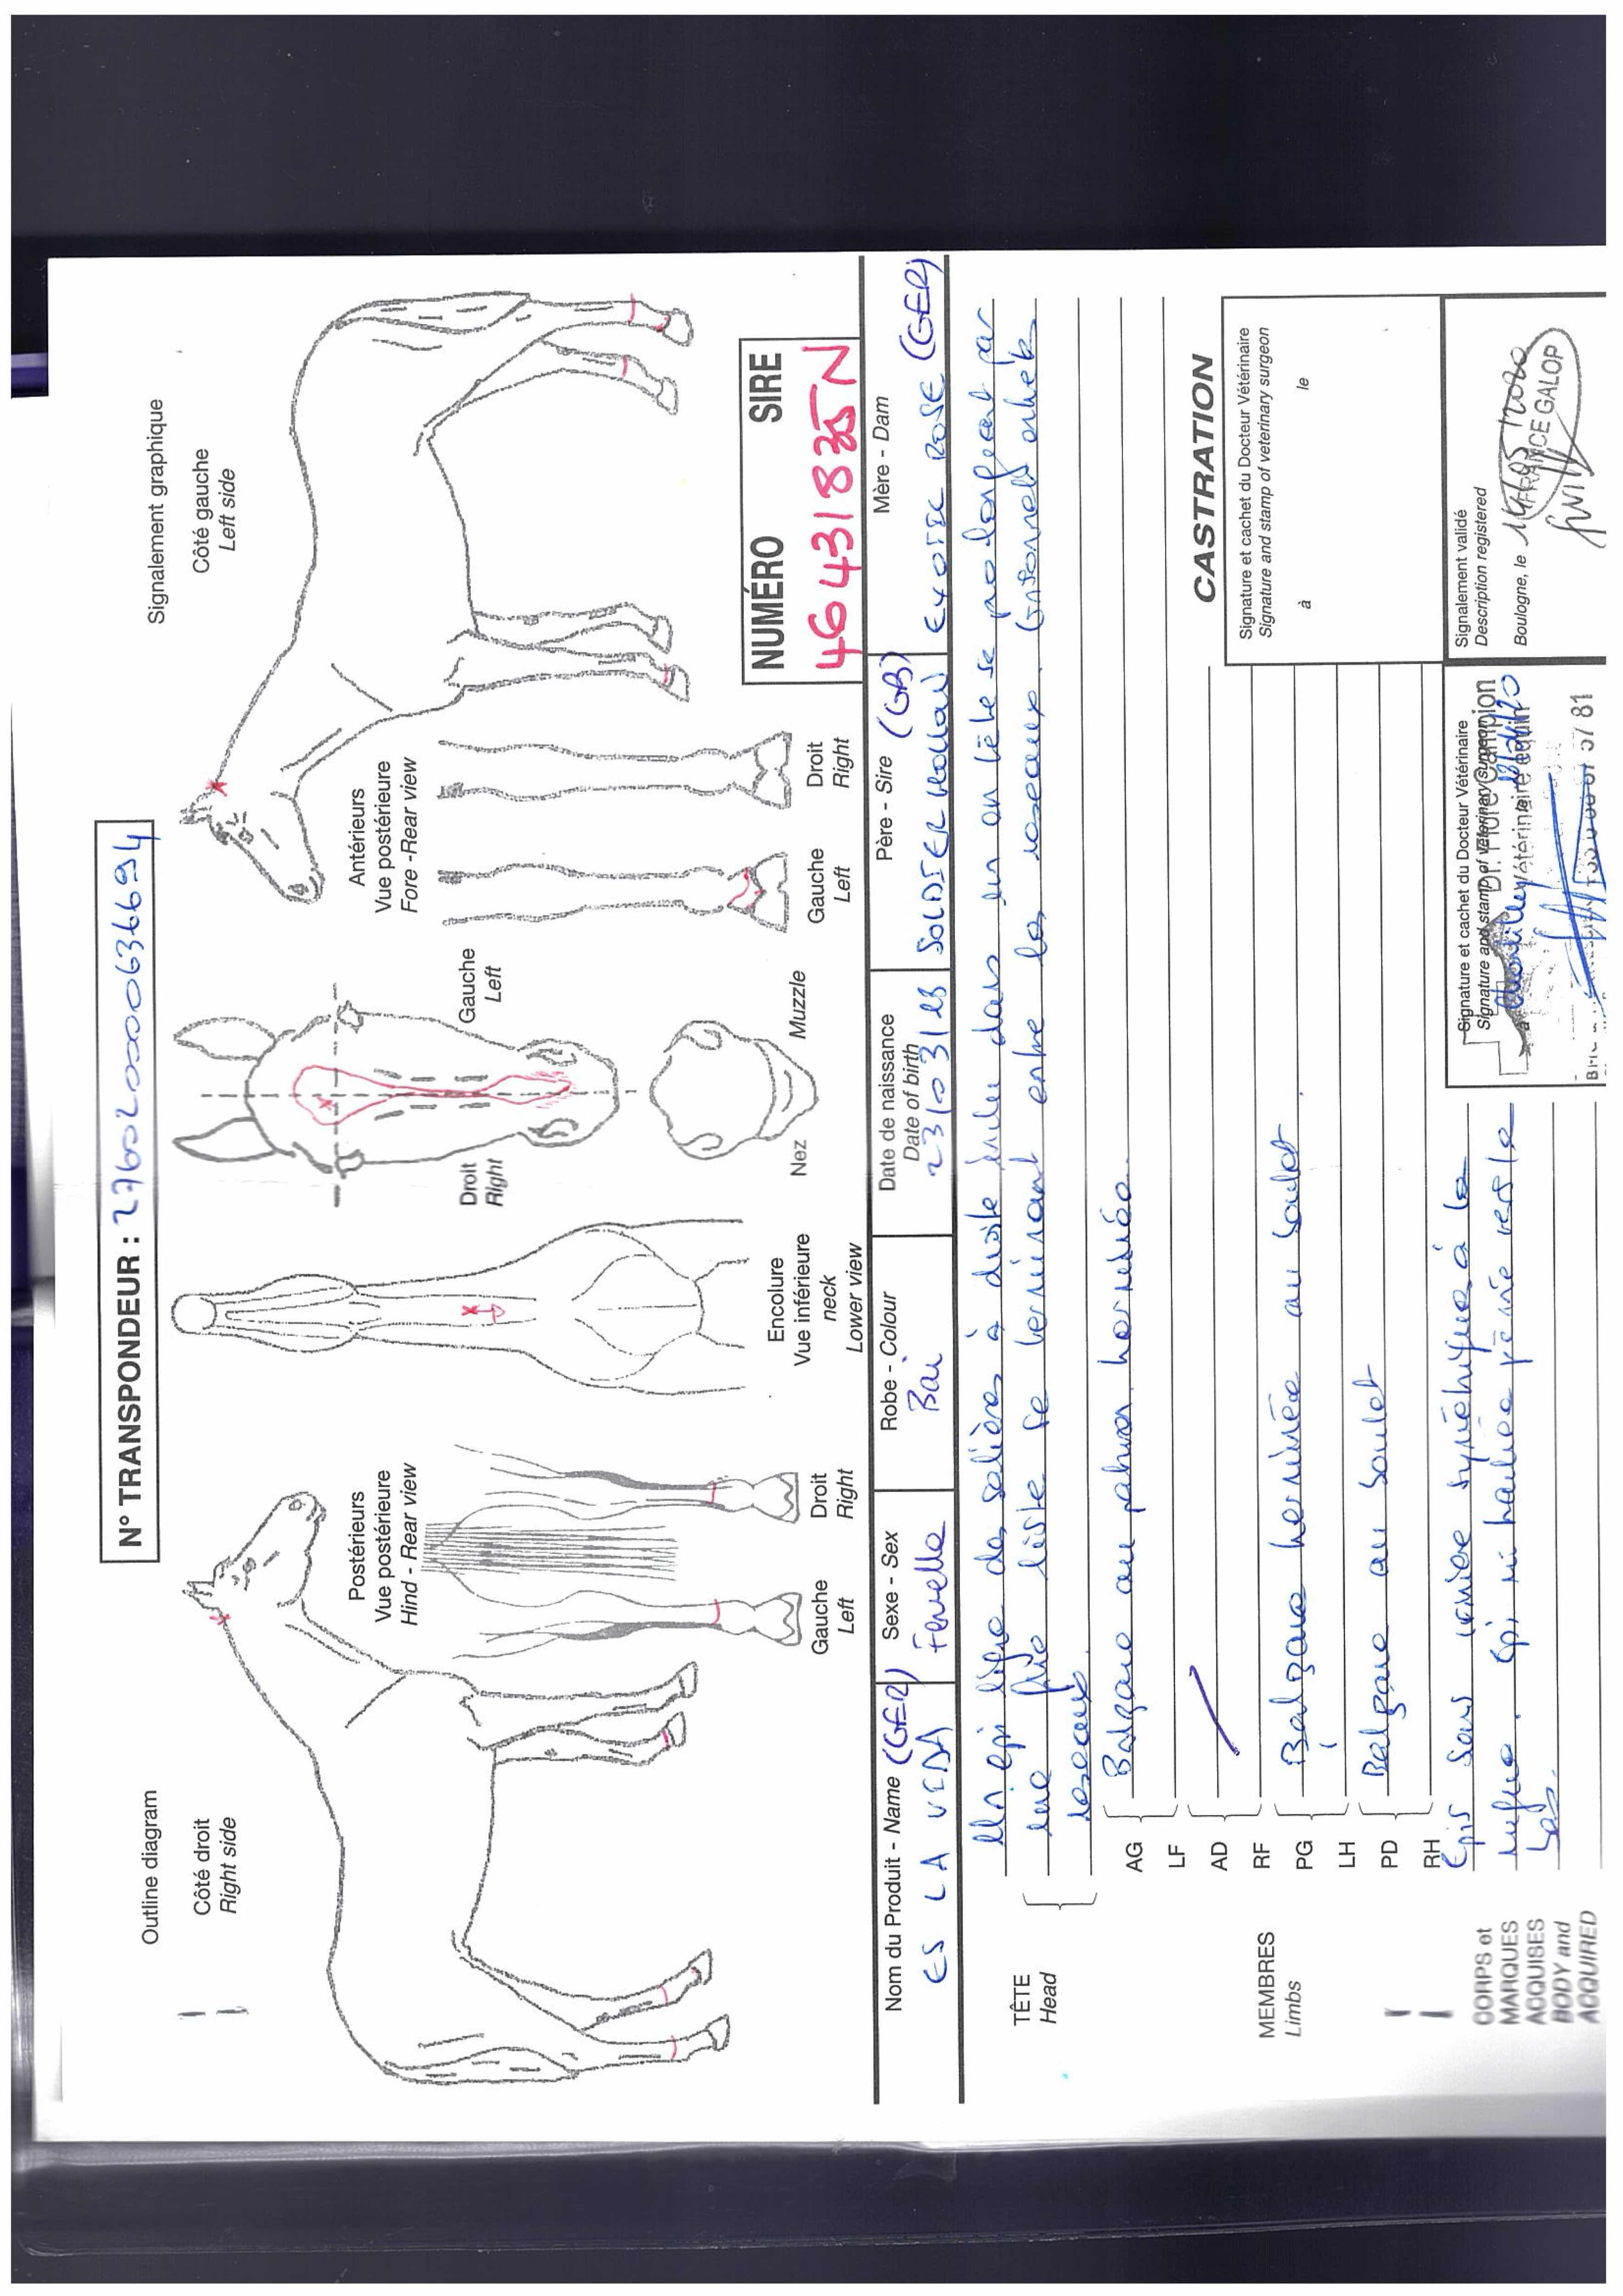 N° TRANSPONDEUR : 276020000636694
Outline diagram
Signalement graphique
Côté droit
Right side
Côté gauche
Left side
Postérieurs
Vue postérieure
Hind - Rear view
Gauche
Left
Droit
Right
Encolure
Vue inférieure
neck
Lower view
Droit
Right
Gauche
Left
Nez
Muzzle
Antérieurs
Vue postérieure
Fore - Rear view
Gauche
Left
Droit
Right
NUMÉRO SIRE
46431835N
Nom du Produit - Name (GER)
ES LA VIDA
Sexe - Sex
Femelle
Robe - Colour
Bai
Date de naissance
Date of birth
23/03/18
Père - Sire (GB)
SOLDIER HOLLOW
Mère - Dam
EXOTIC ROSE (GER)
TÊTE
Head
Un épi ligne des salières à droite inclu dans un en tête se prolongeant par
une fine liste se terminant entre les naseaux.
naseaux
MEMBRES
Limbs
AG
LF
Balzane au paturon herminée.
AD
RF
PG
LH
Balzane herminée au boulet.
PD
RH
Balzane au boulet
CORPS et
MARQUES
ACQUISES
BODY and
ACQUIRED
Epis sous crinière symétriques à la
nuque. Epi mi trachée pénné vers le
bas.
CASTRATION
Signature et cachet du Docteur Vétérinaire
Signature and stamp of veterinary surgeon
à le
Signature et cachet du Docteur Vétérinaire
Signature and stamp of veterinary surgeon
Vétérinaire équin
Signalement validé
Description registered
Boulogne, le
FRANCE GALOP